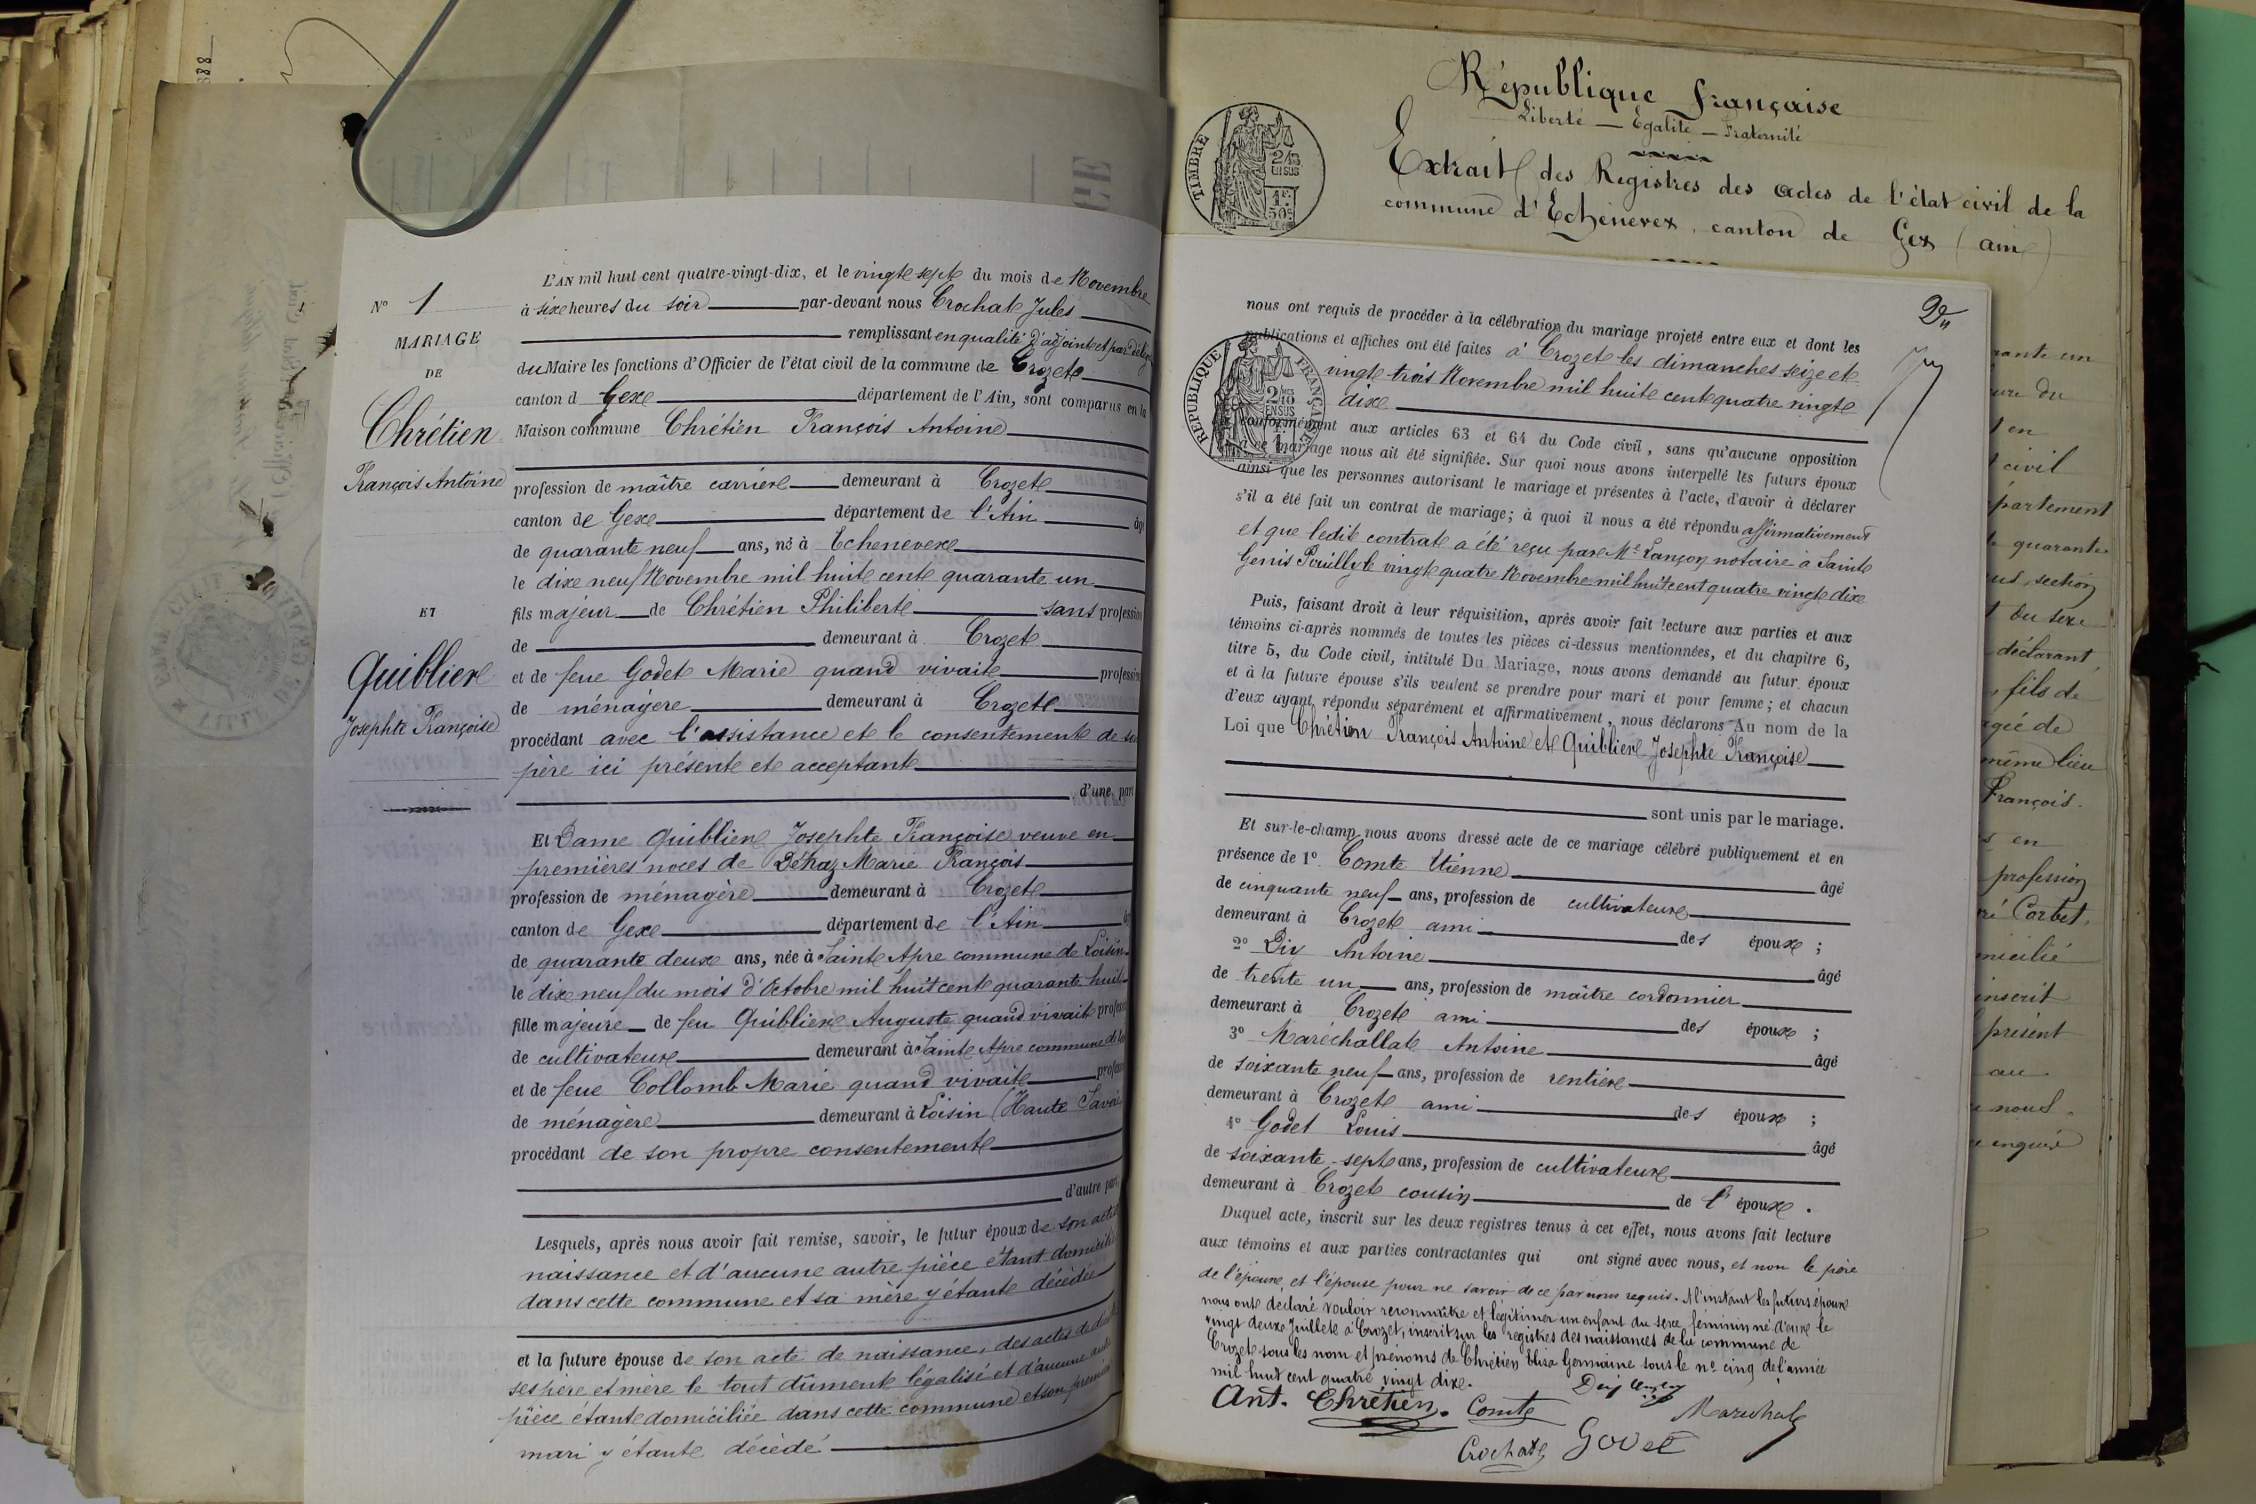 L'AN mil huit cent quatre-vingt-dix, et le vingt sept du mois de Novembre
N° 1
à six heures du soir par-devant nous Crochat Jules
MARIAGE
remplissant en qualité d'adjoint et par délég
DE
du Maire les fonctions d'Officier de l'état civil de la commune de Crozet
canton d Gex département de l'Ain, sont comparus en la
Chrétien
Maison commune Chrétien François Antoine
François Antoine
profession de maître carrier demeurant à Crozet
canton de Gex département de l'Ain âgé
de quarante neuf ans, né à Echenevex
le dix neuf Novembre mil huit cent quarante un
ET
fils majeur de Chrétien Philibert sans profession
de demeurant à Crozet
Quiblier
et de feue Godet Marie quand vivait profession
de ménagère demeurant à Crozet
Josephte Françoise
procédant avec l'assistance et le consentement de son
père ici présent et acceptant
d'une part
Et Dame Quiblier Josephte Françoise veuve en
premières noces de Déhaz Marie François
profession de ménagère demeurant à Crozet
canton de Gex département de l'Ain
de quarante deux ans, née à Saint Apre commune de Loisin
le dix neuf du mois d'Octobre mil huit cent quarante huit
fille majeure de feu Quiblier Auguste quand vivait profess
de cultivateur demeurant à Saint Apre commune de Lo
et de feue Collomb Marie quand vivait profess
de ménagère demeurant à Loisin (Haute Savoi
procédant de son propre consentement
d'autre part
Lesquels, après nous avoir fait remise, savoir, le futur époux de son acte
naissance et d'aucune autre pièce étant domicilié
dans cette commune et sa mère y étant décédée
et la future épouse de son acte de naissance, des actes de décès
ses père et mère le tout dûment légalisé et d'aucune autre
pièce étant domiciliée dans cette commune et son premier
mari y étant décédé
République française
Liberté — Egalité — Fraternité
Extrait des Registres des actes de l'état civil de la
commune d'Echenevex, canton de Gex (ain)
TIMBRE
2/10
EN SUS
1F
50C
2
nous ont requis de procéder à la célébration du mariage projeté entre eux et dont les
publications et affiches ont été faites à Crozet les dimanches seize et
vingt trois Novembre mil huit cent quatre vingt
dix
RÉPUBLIQUE FRANÇAISE
2/10
EN SUS
conformément aux articles 63 et 64 du Code civil, sans qu'aucune opposition
à ce mariage nous ait été signifiée. Sur quoi nous avons interpellé les futurs époux
ainsi que les personnes autorisant le mariage et présentes à l'acte, d'avoir à déclarer
s'il a été fait un contrat de mariage; à quoi il nous a été répondu affirmativement
et que ledit contrat a été reçu par Me Lançon notaire à Saint
Genis Pouilly le vingt quatre Novembre mil huit cent quatre vingt dix
Puis, faisant droit à leur réquisition, après avoir fait lecture aux parties et aux
témoins ci-après nommés de toutes les pièces ci-dessus mentionnées, et du chapitre 6,
titre 5, du Code civil, intitulé Du Mariage, nous avons demandé au futur époux
et à la future épouse s'ils veulent se prendre pour mari et pour femme; et chacun
d'eux ayant répondu séparément et affirmativement, nous déclarons Au nom de la
Loi que Chrétien François Antoine et Quiblier Josephte Françoise
sont unis par le mariage.
Et sur-le-champ nous avons dressé acte de ce mariage célébré publiquement et en
présence de 1° Comte Etienne âgé
de cinquante neuf ans, profession de cultivateur
demeurant à Crozet ami des époux ;
2° Div Antoine âgé
de trente un ans, profession de maître cordonnier
demeurant à Crozet ami des époux ;
3° Maréchallat Antoine âgé
de soixante neuf ans, profession de rentier
demeurant à Crozet ami des époux ;
4° Godet Louis âgé
de soixante sept ans, profession de cultivateur
demeurant à Crozet cousin de l' époux.
Duquel acte, inscrit sur les deux registres tenus à cet effet, nous avons fait lecture
aux témoins et aux parties contractantes qui ont signé avec nous, et non le père
de l'époux et l'épouse pour ne savoir de ce par nous requis. A l'instant les futurs époux
nous ont déclaré vouloir reconnaître et légitimer un enfant du sexe féminin né d'eux le
vingt deux Juillet à Crozet, inscrit sur les registres des naissances de la commune de
Crozet sous les nom et prénoms de Chrétien Elisa Germaine sous le n° cinq de l'année
mil huit cent quatre vingt dix.
Ant. Chrétien. Comte
Marechal
Crochat Godet
rante un
en
civil
partement
quarante
section
du sexe
déclarant,
fils de
agée de
même lieu
François.
en
profession
Corbet,
inscrit
présent
au
nous